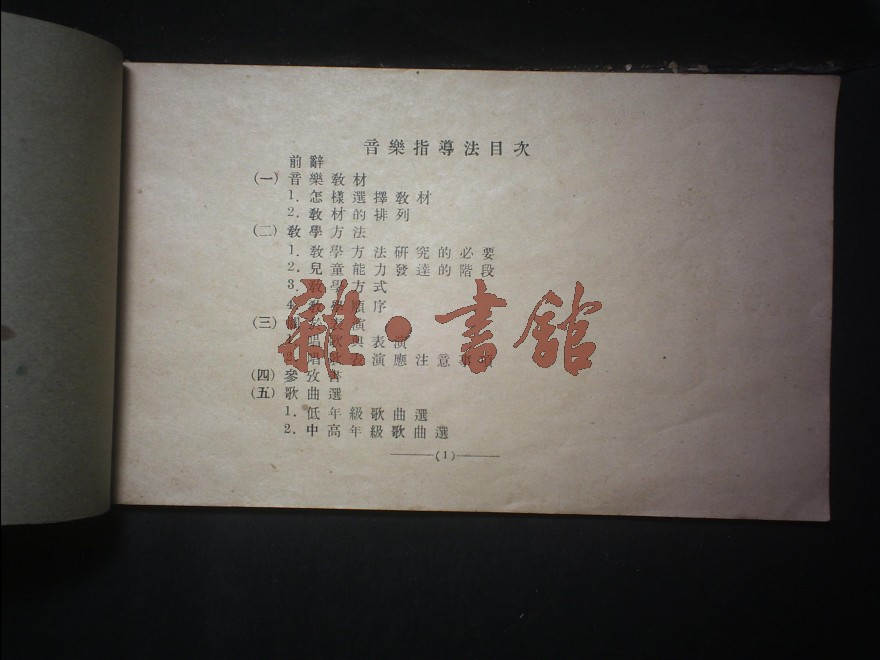 音樂指導法目次
前辭
(一)音樂教材
1.怎樣選擇教材
2.教材的排列
(二)教學方法
1.教學方法研究的必要
2.兒童能力發達的階段
3.教學方式
4.教學順序
(三)演
1.唱歌與表演
2.唱歌表演應注意事項
(四)參攷書
(五)歌曲選
1.低年級歌曲選
2.中高年級歌曲選
(1)
雜·書舘